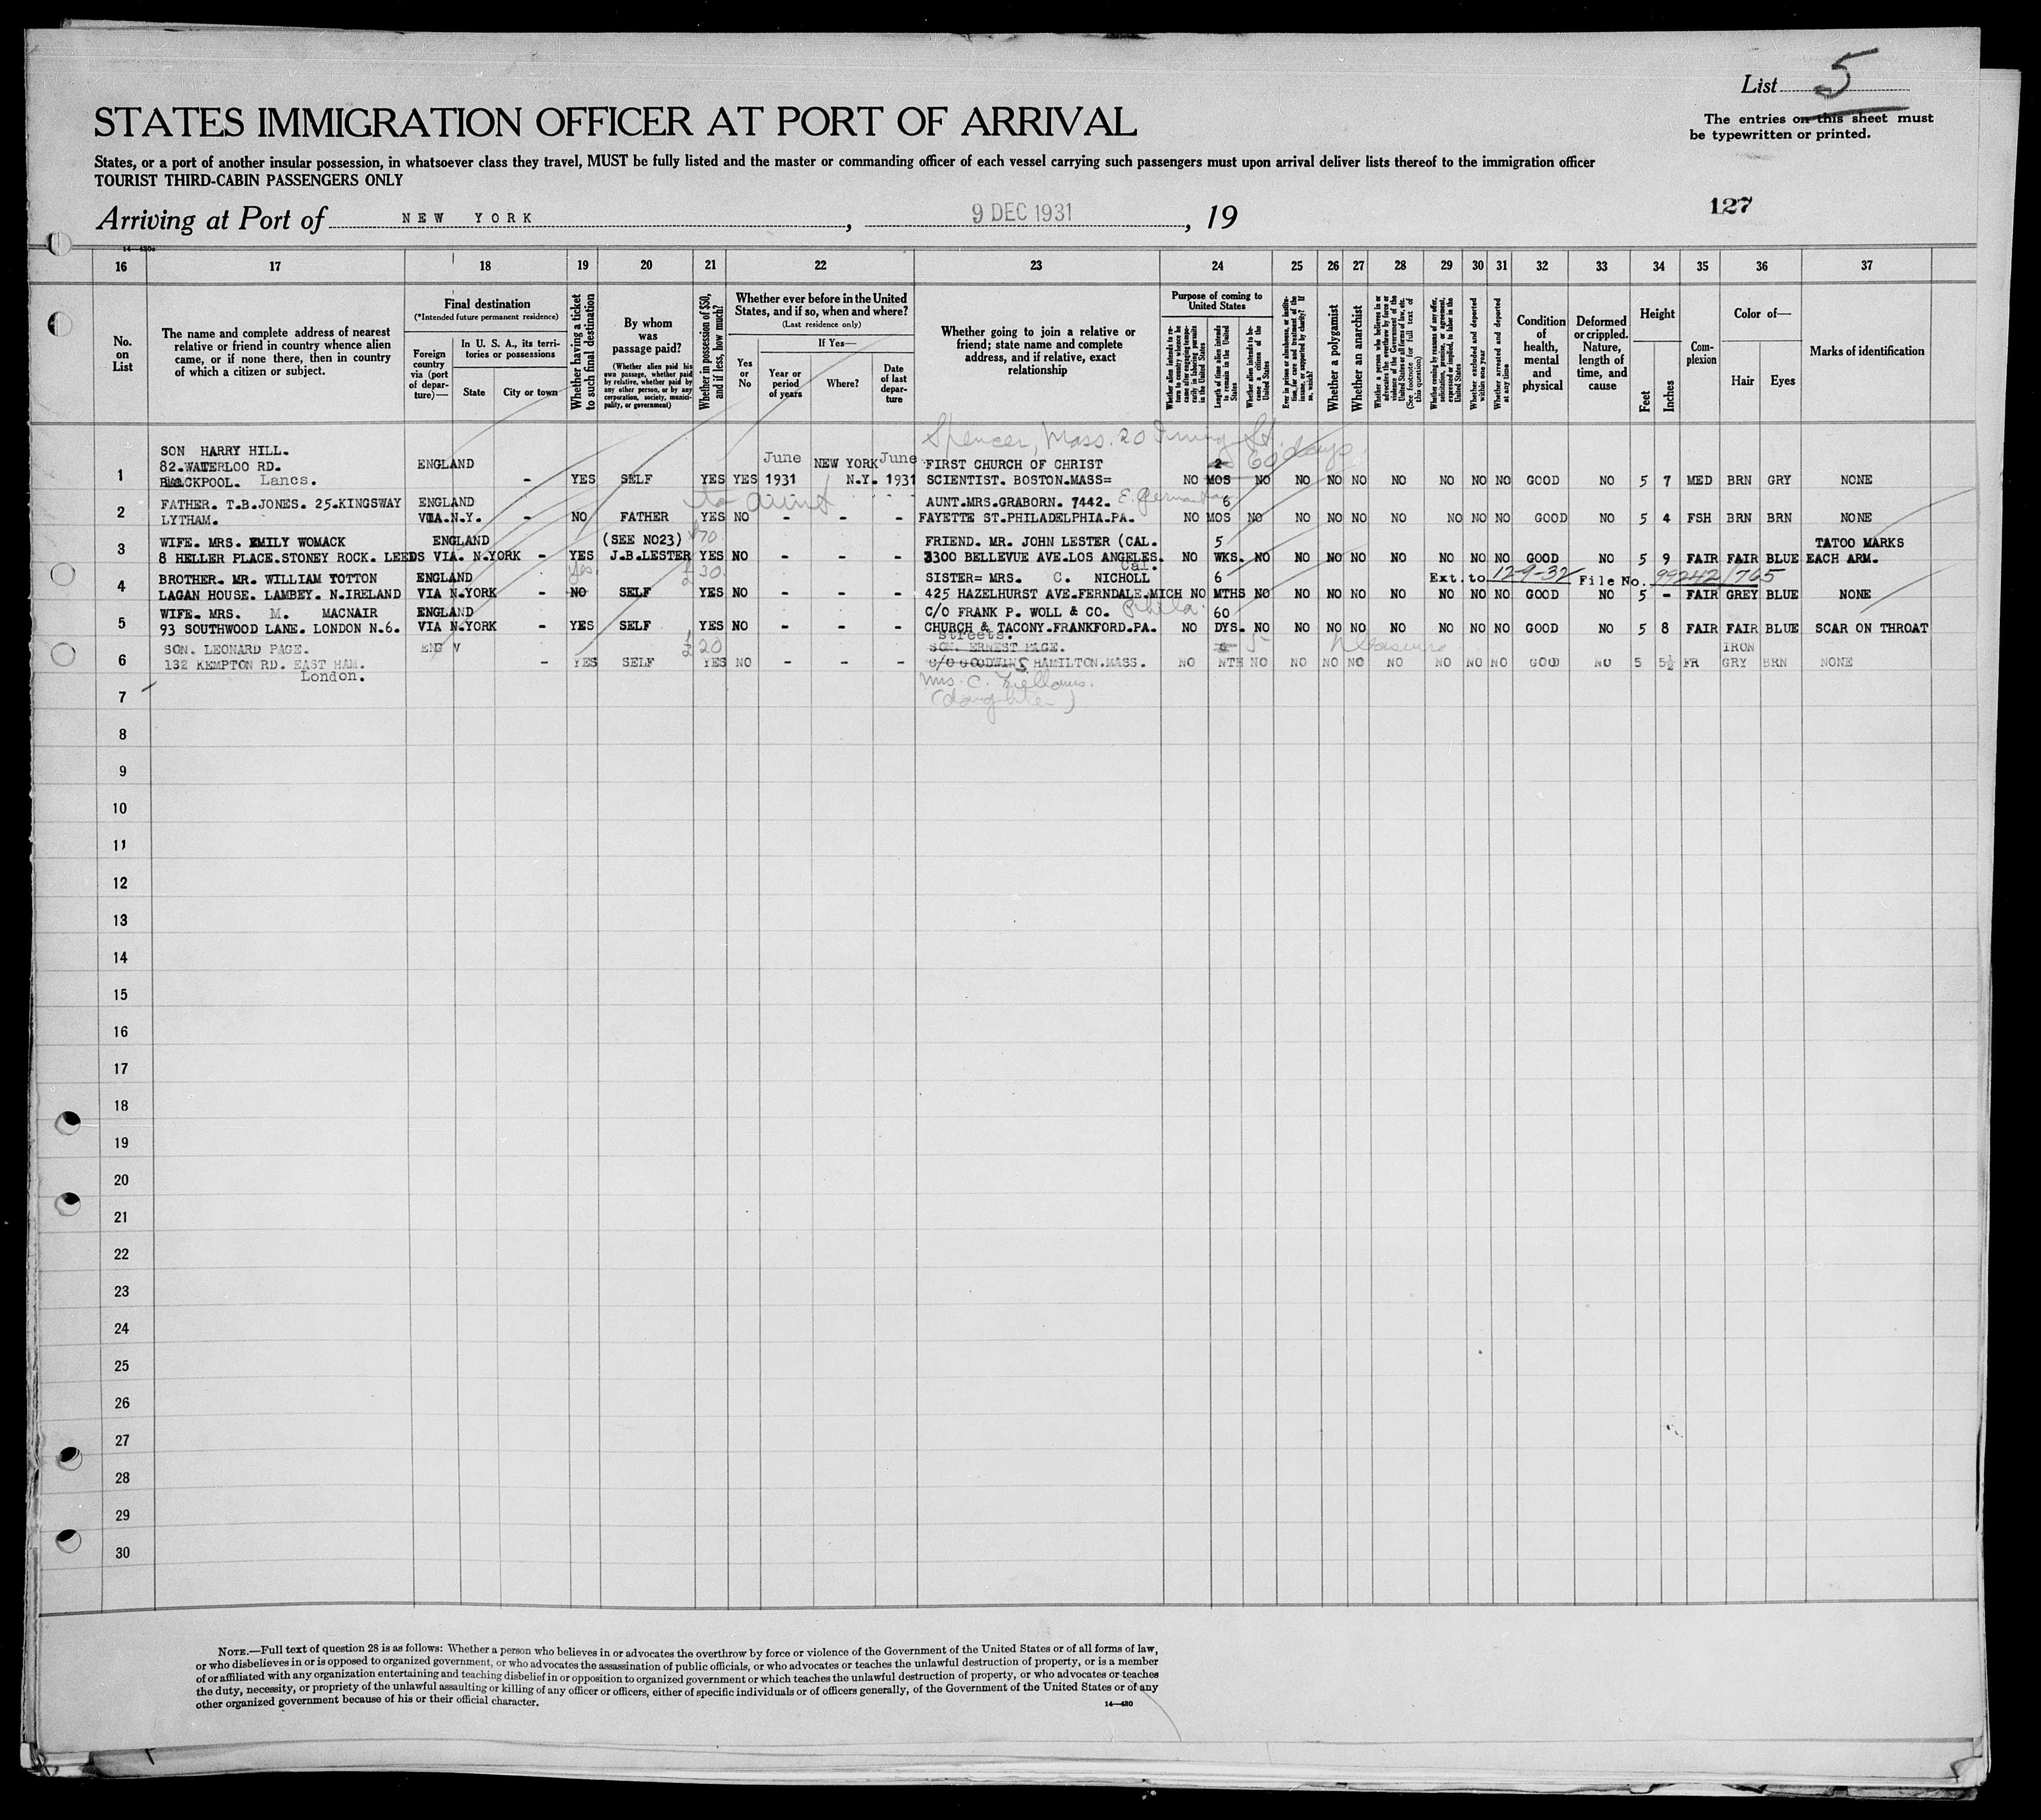 List 5
STATES IMMIGRATION OFFICER AT PORT OF ARRIVAL
The entries on this sheet must
be typewritten or printed.
States, or a port of another insular possession, in whatsoever class they travel, MUST be fully listed and the master or commanding officer of each vessel carrying such passengers must upon arrival deliver lists thereof to the immigration officer
TOURIST THIRD-CABIN PASSENGERS ONLY
Arriving at Port of NEW YORK, 9 DEC 1931, 19
127
14—430a
16 17 18 19 20 21 22 23 24 25 26 27 28 29 30 31 32 33 34 35 36 37
No.
on
List
The name and complete address of nearest
relative or friend in country whence alien
came, or if none there, then in country
of which a citizen or subject.
Final destination
(*Intended future permanent residence)
Foreign
country
via (port
of depar-
ture)—
In U. S. A., its terri-
tories or possessions
State City or town
Whether having a ticket
to such final destination
By whom
was
passage paid?
(Whether alien paid his
own passage, whether paid
by relative, whether paid by
any other person, or by any
corporation, society, munici-
pality, or government)
Whether in possession of $50,
and if less, how much?
Whether ever before in the United
States, and if so, when and where?
(Last residence only)
Yes
or
No
If Yes—
Year or
period
of years
Where?
Date
of last
depar-
ture
Whether going to join a relative or
friend; state name and complete
address, and if relative, exact
relationship
Purpose of coming to
United States
Whether alien intends to re-
turn to country whence he
came after engaging tempo-
rarily in laboring pursuits
in the United States
Length of time alien intends
to remain in the United
States
Whether alien intends to be-
come a citizen of the
United States
Ever in prison or almshouse, or institu-
tion, for care and treatment of the
insane, or supported by charity? If
so, which?
Whether a polygamist
Whether an anarchist
Whether a person who believes in or
advocates the overthrow by force or
violence of the Government of the
United States or all forms of law, etc.
(See footnote for full text of
this question)
Whether coming by reasons of any offer,
solicitation, promise, or agreement,
expressed or implied, to labor in the
United States
Whether excluded and deported
within one year
Whether arrested and deported
at any time
Condition
of
health,
mental
and
physical
Deformed
or crippled.
Nature,
length of
time, and
cause
Height
Feet Inches
Com-
plexion
Color of—
Hair Eyes
Marks of identification
Spencer, Mass. 20 Irving St.
SON HARRY HILL. June June 60 days
82.WATERLOO RD. ENGLAND NEW YORK FIRST CHURCH OF CHRIST 2
1 BLACKPOOL. Lancs. - YES SELF YES YES 1931 N.Y. 1931 SCIENTIST. BOSTON.MASS= NO MOS NO NO NO NO NO NO NO NO GOOD NO 5 7 MED BRN GRY NONE
to Aunt
FATHER. T.B.JONES. 25.KINGSWAY ENGLAND AUNT.MRS.GRABORN. 7442. E. 6
2 LYTHAM. VIA.N.Y. - NO FATHER YES NO - - - FAYETTE ST.PHILADELPHIA.PA. NO MOS NO NO NO NO NO NO NO NO GOOD NO 5 4 FSH BRN BRN NONE
WIFE. MRS. EMILY WOMACK ENGLAND (SEE NO23) $70. FRIEND. MR. JOHN LESTER (CAL. 5 TATOO MARKS
3 8 HELLER PLACE.STONEY ROCK. LEEDS VIA. N.YORK - YES J.B.LESTER YES NO - - - 3300 BELLEVUE AVE.LOS ANGELES. NO WKS. NO NO NO NO NO NO NO NO GOOD NO 5 9 FAIR FAIR BLUE EACH ARM.
Cal.
BROTHER. MR. WILLIAM TOTTON ENGLAND Yes 30. SISTER= MRS. C. NICHOLL 6 Ext. to 12-9-32 File No. 99242/765
4 LAGAN HOUSE. LAMBEY. N.IRELAND VIA N.YORK - NO SELF YES NO - - - 425 HAZELHURST AVE.FERNDALE.MICH NO MTHS NO NO NO NO NO NO NO NO GOOD NO 5 - FAIR GREY BLUE NONE
WIFE. MRS. M. MACNAIR ENGLAND C/O FRANK P. WOLL & CO. Phila. 60
5 93 SOUTHWOOD LANE. LONDON N.6. VIA N.YORK - YES SELF YES NO - - - CHURCH & TACONY.FRANKFORD.PA. NO DYS. NO NO NO NO NO NO NO NO GOOD NO 5 8 FAIR FAIR BLUE SCAR ON THROAT
streets.
SON. LEONARD PAGE. ENG V 20 SON. ERNEST PAGE. 5 Pleasure IRON
6 132 KEMPTON RD. EAST HAM. - YES SELF YES NO - - - C/O GOODWINS HAMILTON.MASS. NO NTH NO NO NO NO NO NO NO NO GOOD NO 5 5½ FR GRY BRN NONE
London. Mrs. C.
(daughter)
7
8
9
10
11
12
13
14
15
16
17
18
19
20
21
22
23
24
25
26
27
28
29
30
NOTE.—Full text of question 28 is as follows: Whether a person who believes in or advocates the overthrow by force or violence of the Government of the United States or of all forms of law,
or who disbelieves in or is opposed to organized government, or who advocates the assassination of public officials, or who advocates or teaches the unlawful destruction of property, or is a member
of or affiliated with any organization entertaining and teaching disbelief in or opposition to organized government or which teaches the unlawful destruction of property, or who advocates or teaches
the duty, necessity, or propriety of the unlawful assaulting or killing of any officer or officers, either of specific individuals or of officers generally, of the Government of the United States or of any
other organized government because of his or their official character.
14—430